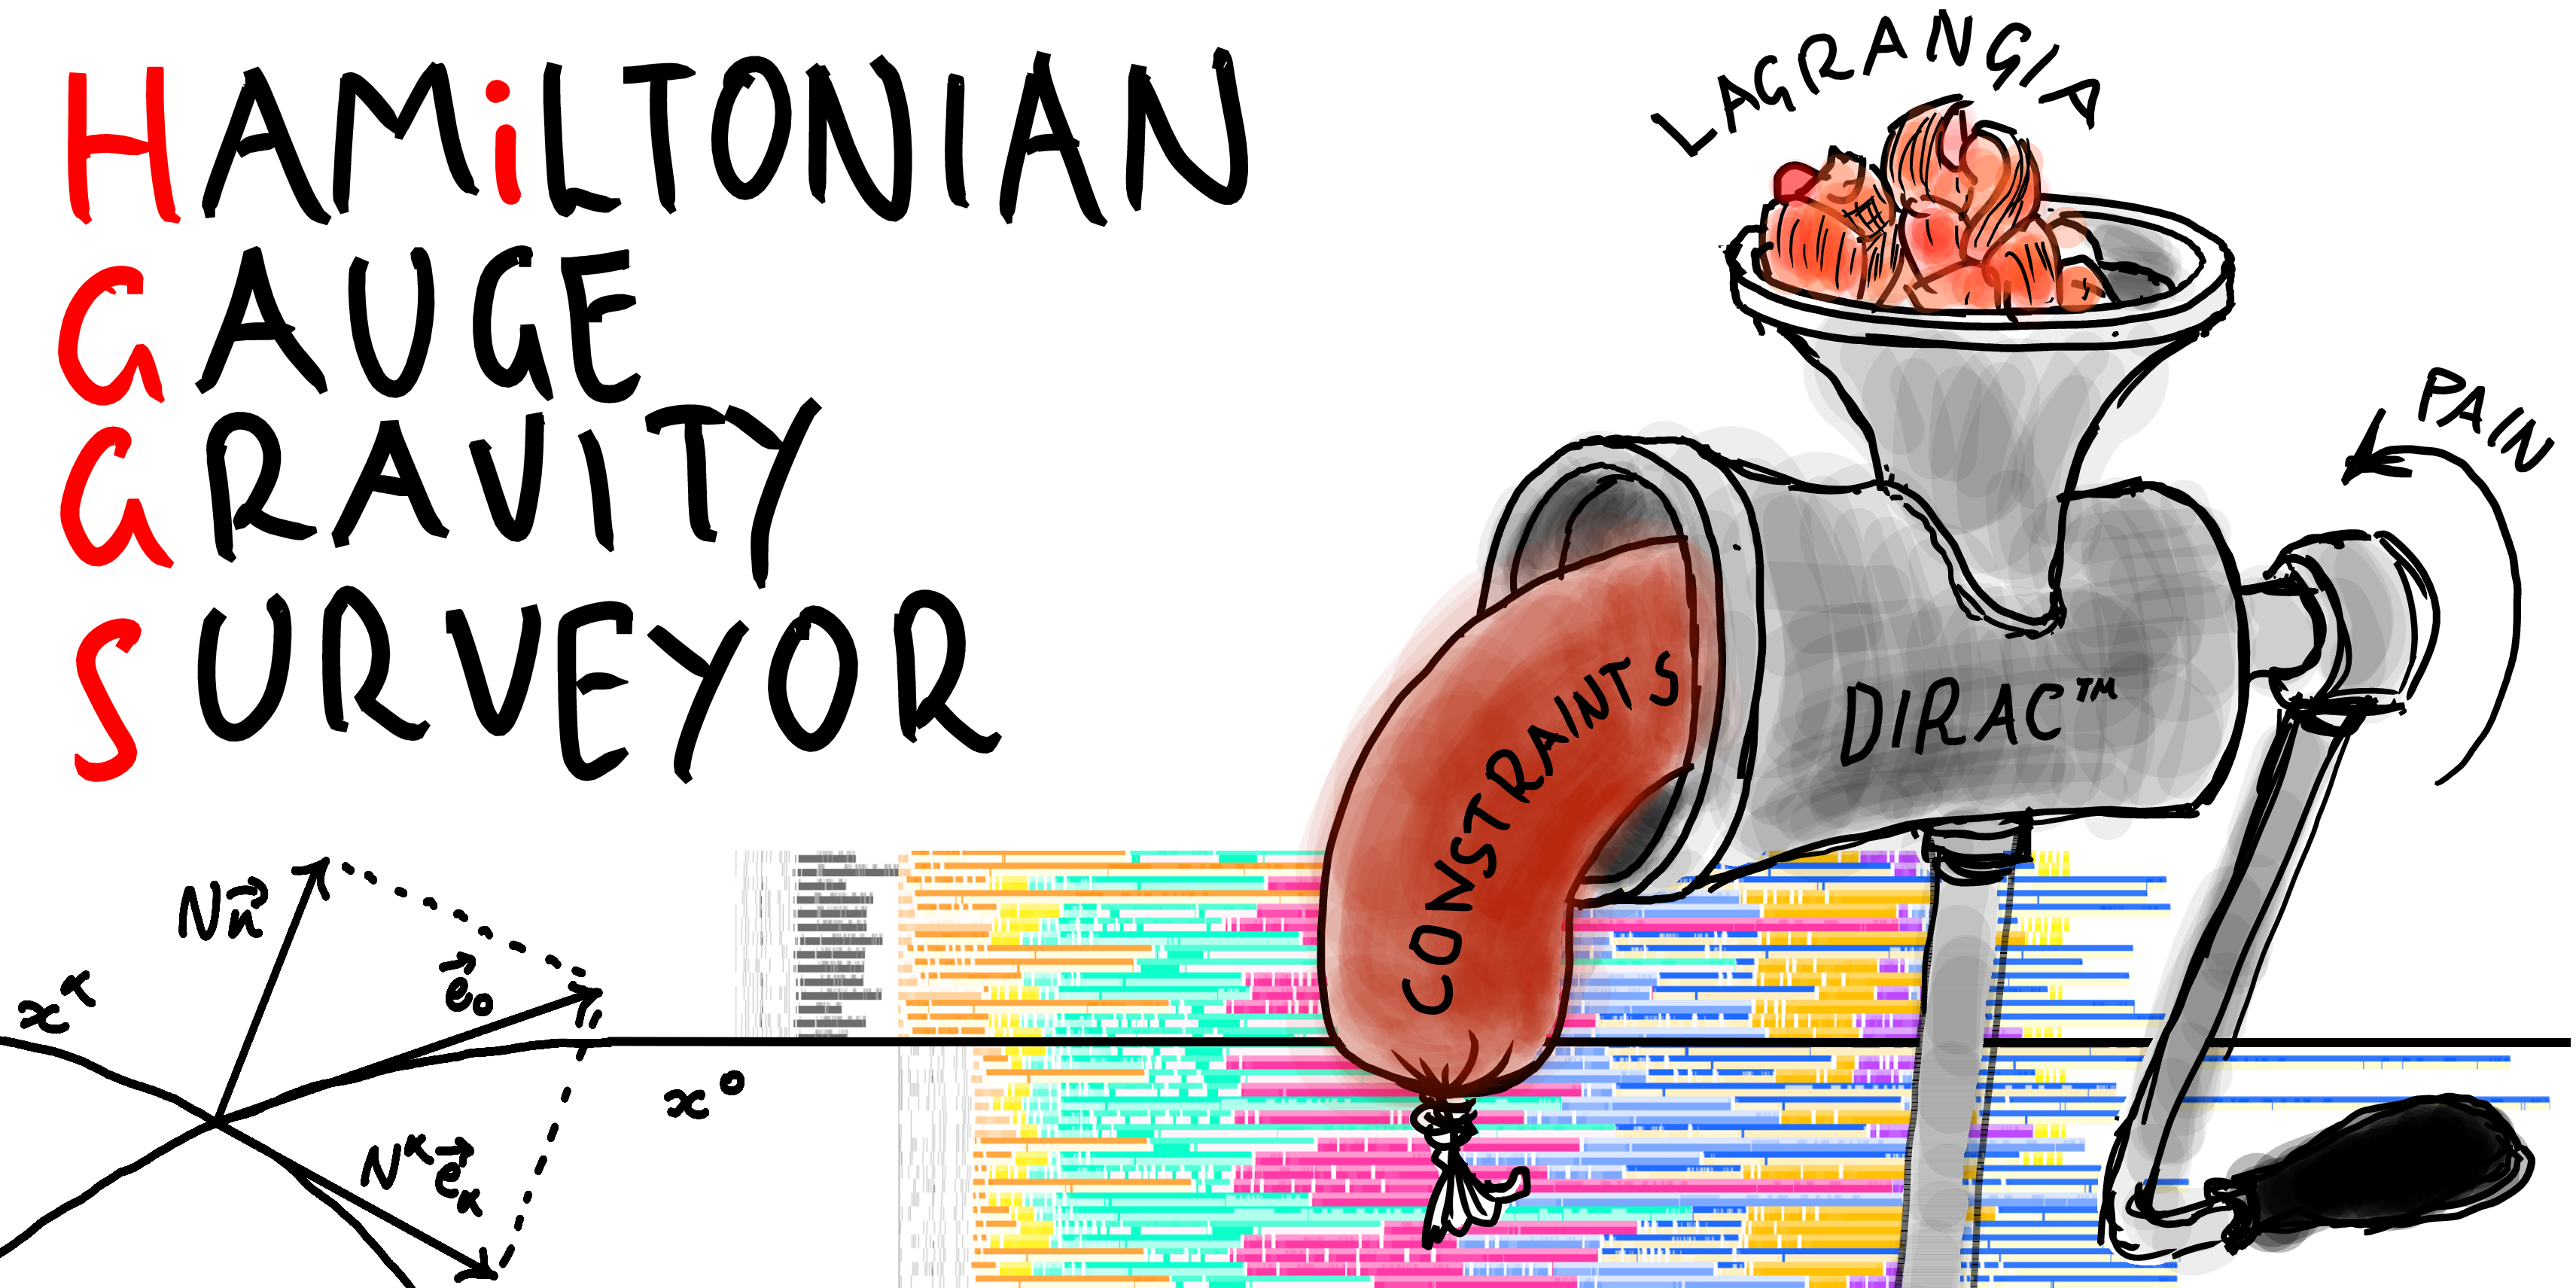 HAMiLTONIAN
GAUGE
GRAVITY
SURVEYOR
LAGRANGIA
PAIN
DIRAC™
CONSTRAINTS
N n⃗
e⃗₀
x^α
x⁰
N^α e⃗_α